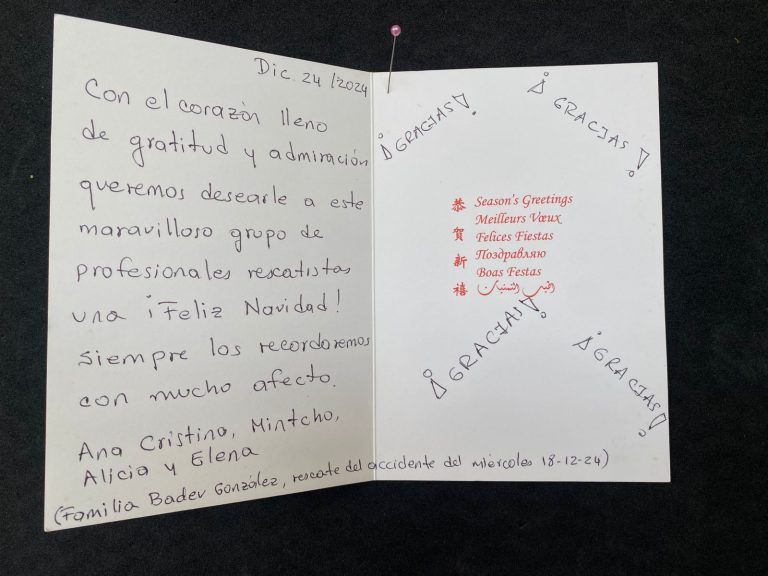 Dic. 24 / 2024
Con el corazón lleno
de gratitud y admiración
queremos desearle a este
maravilloso grupo de
profesionales rescatistas
una ¡Feliz Navidad!
Siempre los recordaremos
con mucho afecto.
Ana Cristina, Mintcho,
Alicia y Elena
(Familia Badev González, rescate del accidente del miércoles 18-12-24)
¡GRACIAS!
¡GRACIAS!
恭賀新禧
Season's Greetings
Meilleurs Vœux
Felices Fiestas
Поздравляю
Boas Festas
¡GRACIAS!
¡GRACIAS!